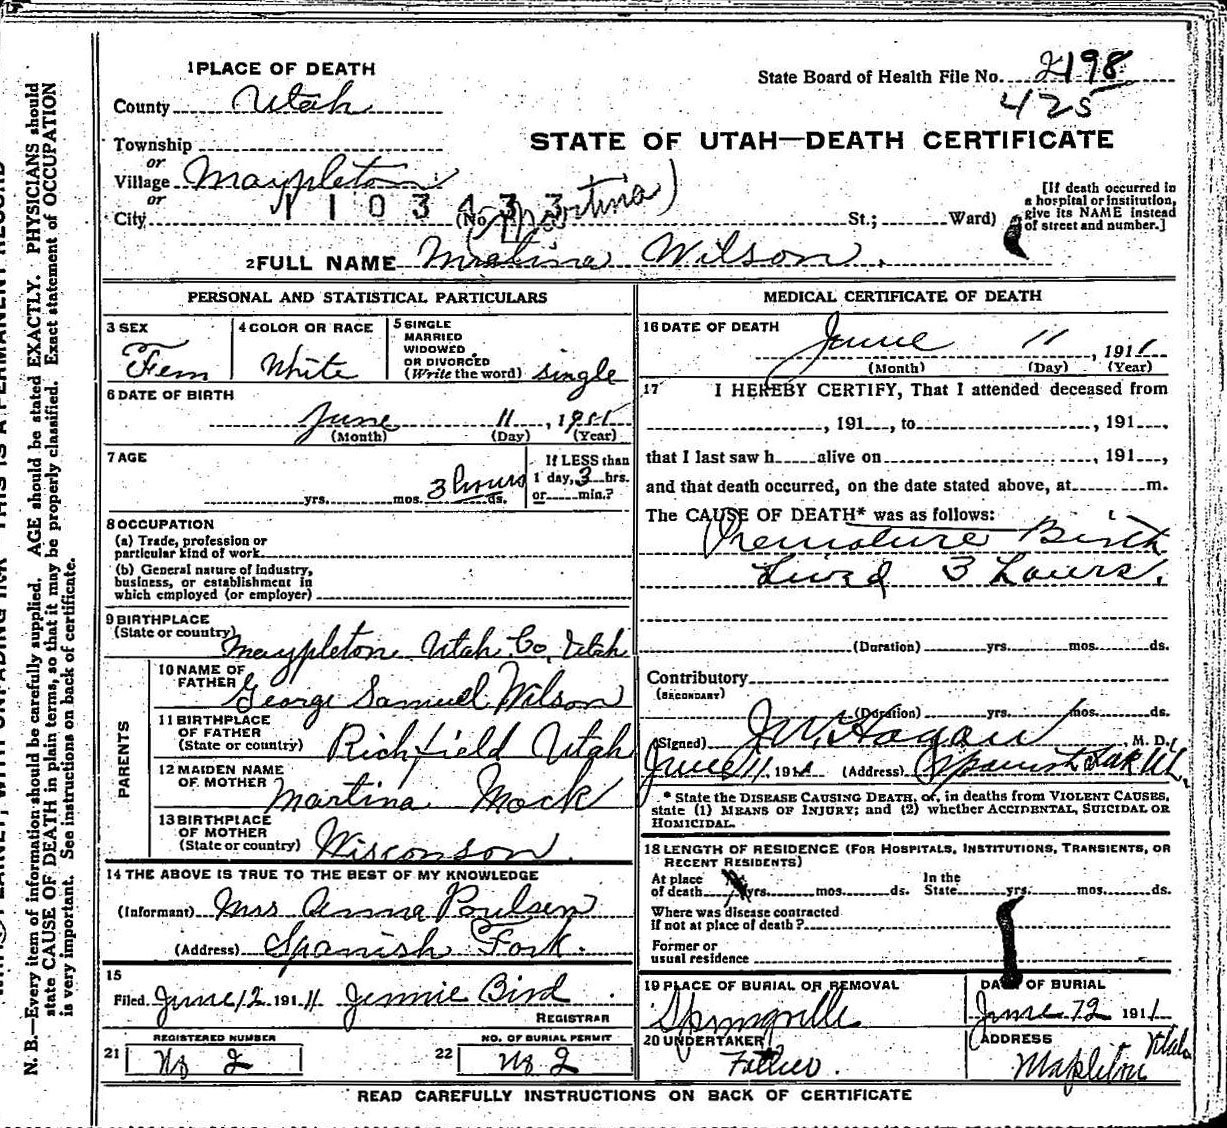 1 PLACE OF DEATH
State Board of Health File No. 2198
425
County Utah
STATE OF UTAH—DEATH CERTIFICATE
Township
or
Village Maypleton
or
City
1 1 0 3 4 3 3
(No. St.; Ward)
(Martina)
[If death occurred in
a hospital or institution,
give its NAME instead
of street and number.]
2 FULL NAME Wilson
PERSONAL AND STATISTICAL PARTICULARS
3 SEX
Fem
4 COLOR OR RACE
White
5 SINGLE
MARRIED
WIDOWED
OR DIVORCED
(Write the word) single
6 DATE OF BIRTH
June 11, 1911
(Month) (Day) (Year)
7 AGE
yrs. mos. 3 hours ds.
If LESS than
1 day, 3 hrs.
or min.?
8 OCCUPATION
(a) Trade, profession or
particular kind of work
(b) General nature of industry,
business, or establishment in
which employed (or employer)
9 BIRTHPLACE
(State or country) Maypleton Utah Co. Utah
PARENTS
10 NAME OF
FATHER George Samuel Wilson
11 BIRTHPLACE
OF FATHER
(State or country) Richfield Utah
12 MAIDEN NAME
OF MOTHER Martina Mock
13 BIRTHPLACE
OF MOTHER
(State or country) Wisconson.
14 THE ABOVE IS TRUE TO THE BEST OF MY KNOWLEDGE
(Informant) Mrs Anna Poulsen
(Address) Spanish Fork.
15
Filed June 12 1911 Jennie Bird
REGISTRAR
REGISTERED NUMBER
21 No 2
NO. OF BURIAL PERMIT
22 No 2
MEDICAL CERTIFICATE OF DEATH
16 DATE OF DEATH
June 11, 1911
(Month) (Day) (Year)
17 I HEREBY CERTIFY, That I attended deceased from
, 191 , to , 191 ,
that I last saw h alive on , 191 ,
and that death occurred, on the date stated above, at m.
The CAUSE OF DEATH* was as follows:
Premature Birth
Lived 3 hours.
(Duration) yrs. mos. ds.
Contributory
(SECONDARY)
(Duration) yrs. mos. ds.
(Signed) J.W. Hagan, M. D.
June 11 1911 (Address) Spanish Fork Ut.
* State the DISEASE CAUSING DEATH, or, in deaths from VIOLENT CAUSES,
state (1) MEANS OF INJURY; and (2) whether ACCIDENTAL, SUICIDAL OR
HOMICIDAL.
18 LENGTH OF RESIDENCE (FOR HOSPITALS, INSTITUTIONS, TRANSIENTS, OR
RECENT RESIDENTS)
At place
of death yrs. mos. ds.
In the
State yrs. mos. ds.
Where was disease contracted
if not at place of death?
Former or
usual residence
19 PLACE OF BURIAL OR REMOVAL
Springville
DATE OF BURIAL
June 12 1911
20 UNDERTAKER
Father.
ADDRESS
Mapleton Utah
READ CAREFULLY INSTRUCTIONS ON BACK OF CERTIFICATE
N. B.—Every item of information should be carefully supplied. AGE should be stated EXACTLY. PHYSICIANS should
state CAUSE OF DEATH in plain terms, so that it may be properly classified. Exact statement of OCCUPATION
is very important. See instructions on back of certificate.